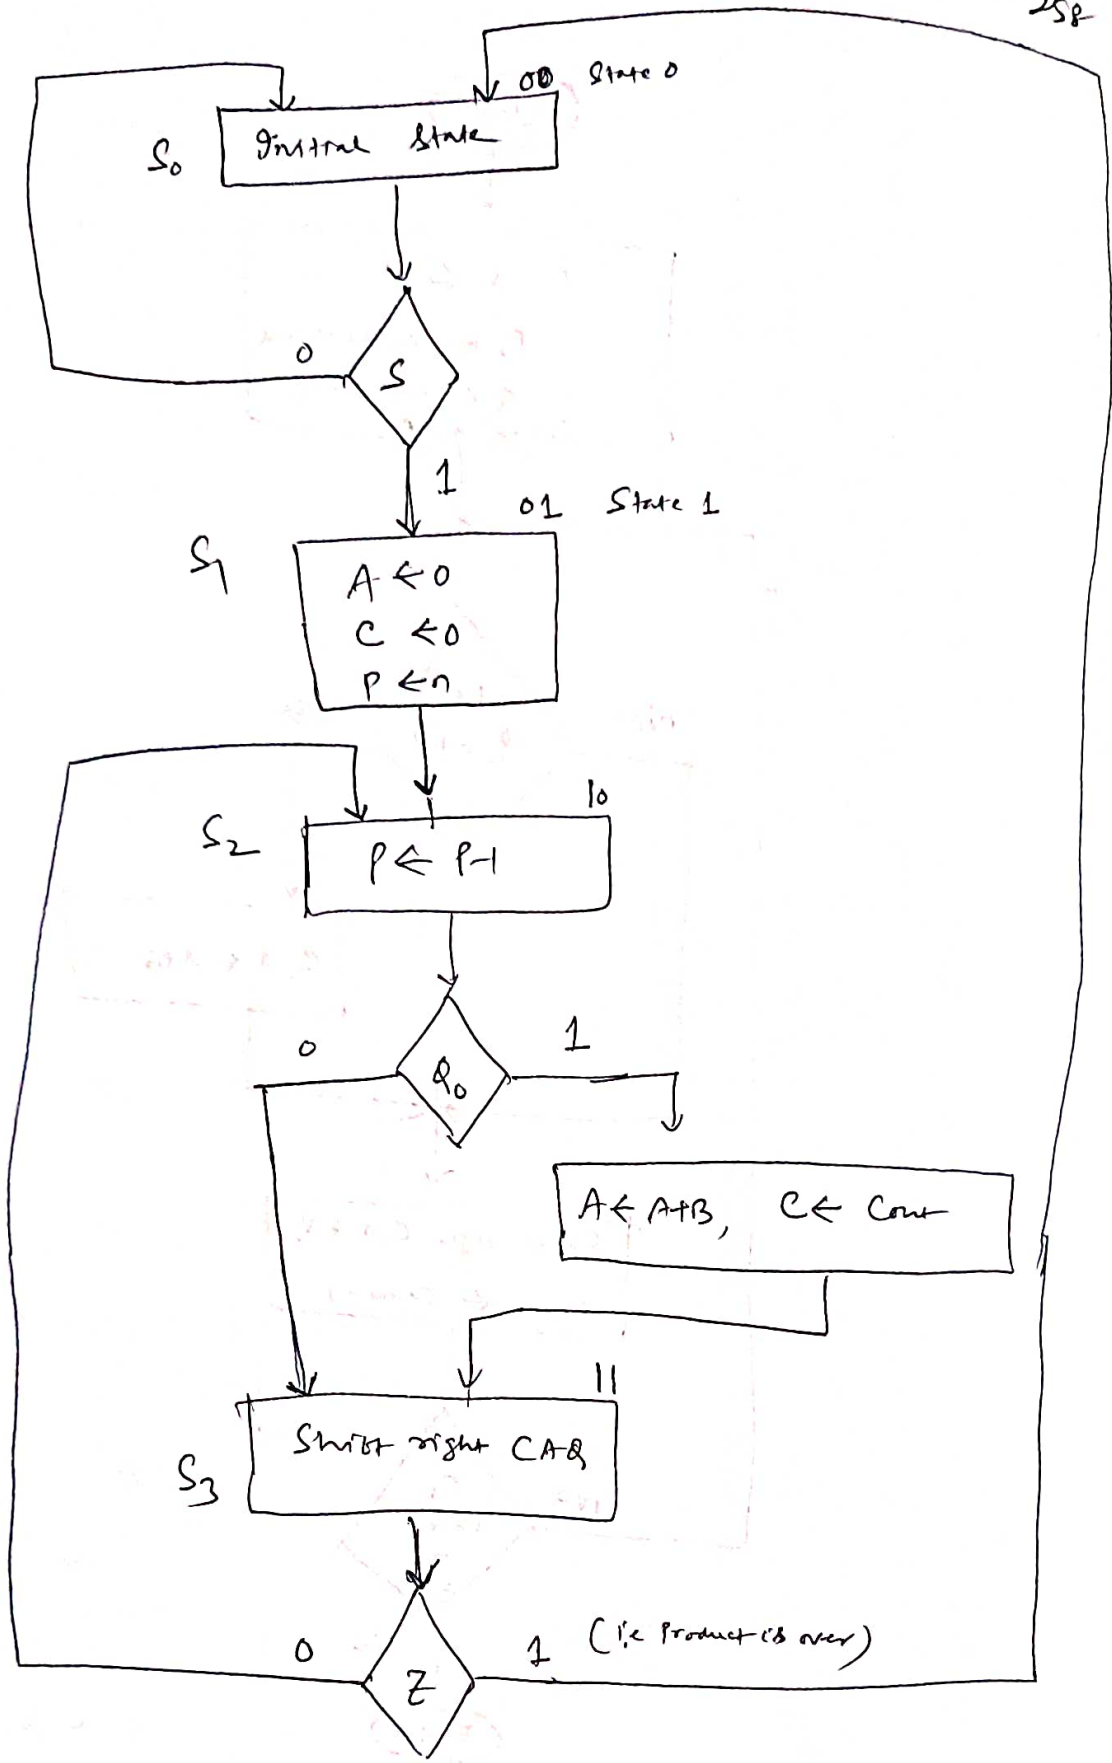 258
00 State 0
S₀ Initial State
0
S
1
01 State 1
S₁
A ← 0
C ← 0
P ← n
S₂
10
P ← P-1
0
Q₀
1
A ← A+B, C ← Cout
11
Shift right CAQ
S₃
0
Z
1 (i.e Product is over)